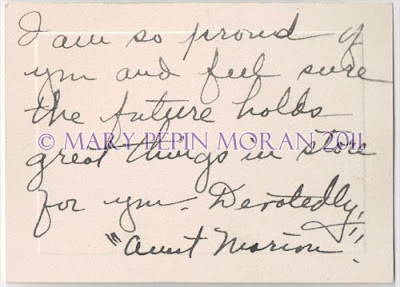 I am so proud of
you and feel sure
the future holds
© MARY PEPIN MORAN 2011
great things in store
for you. Devotedly,
"Aunt Marion"